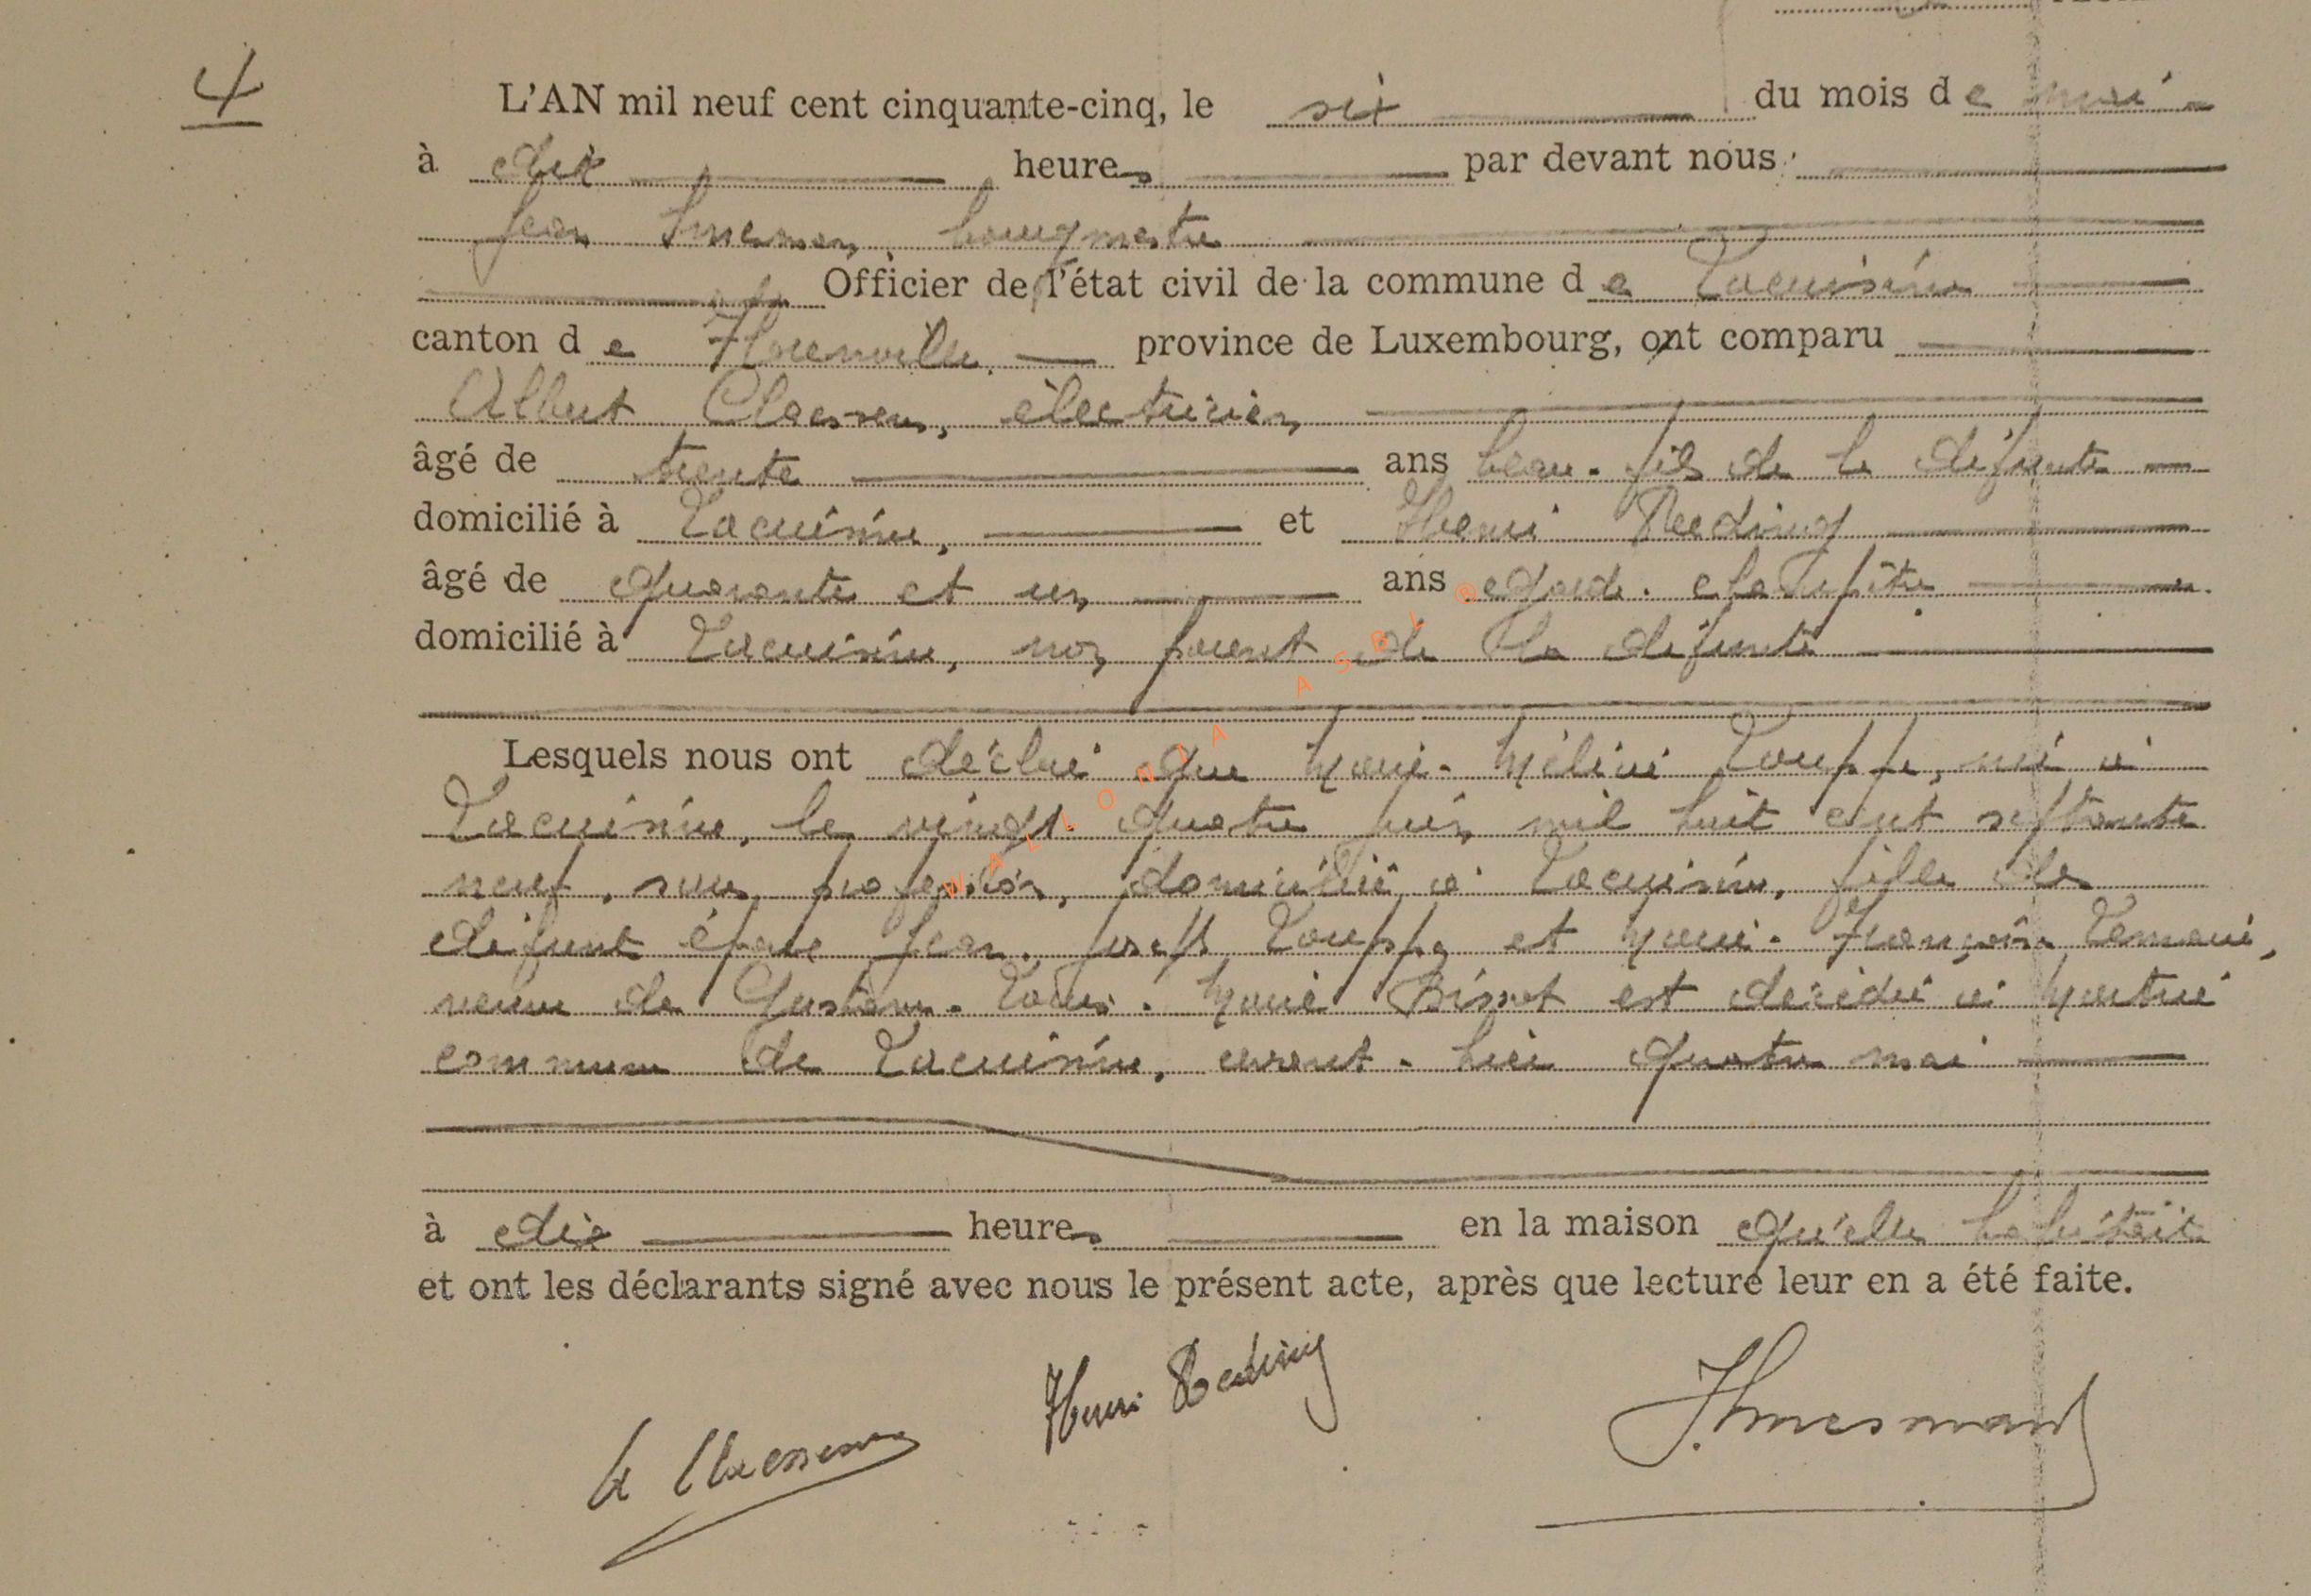 4
L'AN mil neuf cent cinquante-cinq, le six du mois de mai
à dix heures par devant nous
Jean bourgmestre
Officier de l'état civil de la commune de Lacuisine
canton de Florenville, province de Luxembourg, ont comparu
Albert Claessens, électricien
âgé de trente ans beau-fils de la défunte
domicilié à Lacuisine, et Henri Reding
âgé de quarante et un ans garde-champêtre
domicilié à Lacuisine, non parent de la défunte
Lesquels nous ont déclaré que Marie-Mélinie Pouppe, née à
Lacuisine, le vingt quatre juin mil huit cent septante
neuf, sans profession, domiciliée à Lacuisine, fille de
défunt époux Jean-Joseph Louppe et Marie-Françoise
veuve de Gustave-Louis-Marie Bisset est décédée à Martué
commune de Lacuisine, avant-hier quatre mai
à dix heures en la maison qu'elle habitait
et ont les déclarants signé avec nous le présent acte, après que lecture leur en a été faite.
A Claessens Henri Reding
WALLONIA ASBL